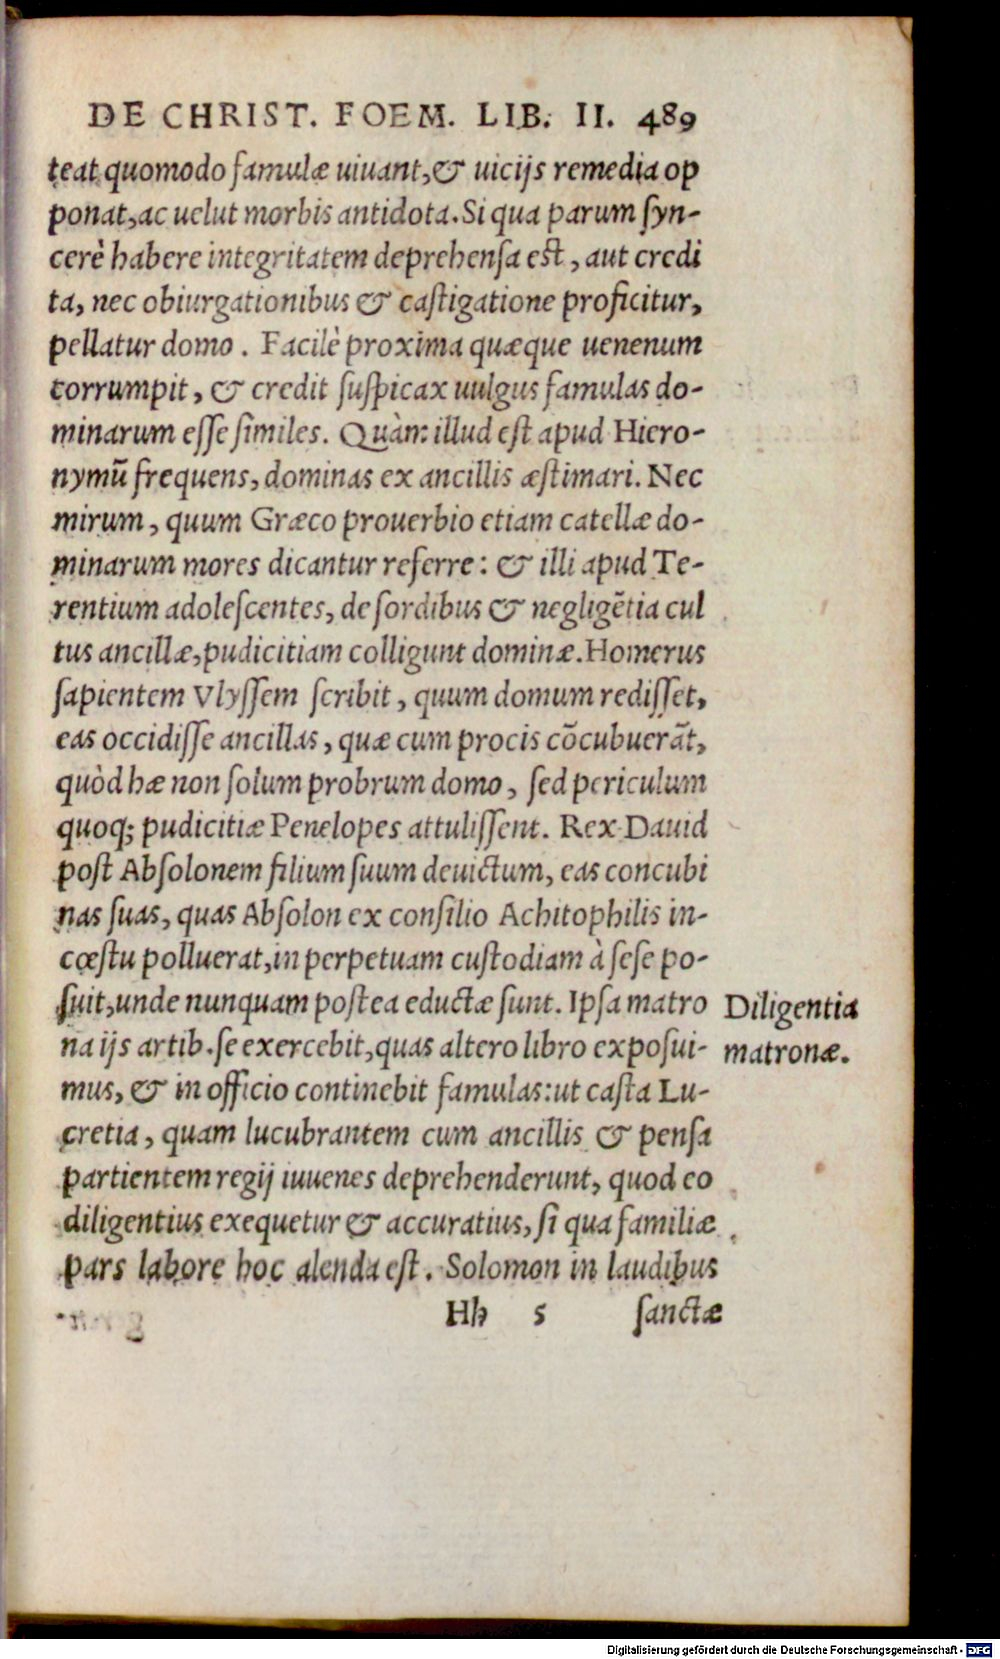 DE CHRIST. FOEM. LIB. II. 489
teat quomodo famulæ uiuant, & uicijs remedia op
ponat, ac uelut morbis antidota. Si qua parum ſyn-
cerè habere integritatem deprehenſa eſt, aut credi
ta, nec obiurgationibus & caſtigatione proficitur,
pellatur domo. Facilè proxima quæque uenenum
corrumpit, & credit ſuſpicax uulgus famulas do-
minarum eſſe ſimiles. Quàm illud eſt apud Hiero-
nymũ frequens, dominas ex ancillis æſtimari. Nec
mirum, quum Græco prouerbio etiam catellæ do-
minarum mores dicantur referre: & illi apud Te-
rentium adoleſcentes, de ſordibus & negligẽtia cul
tus ancillæ, pudicitiam colligunt dominæ. Homerus
ſapientem Vlyſſem ſcribit, quum domum rediſſet,
eas occidiſſe ancillas, quæ cum procis cõcubuerãt,
quòd hæ non ſolum probrum domo, ſed periculum
quoq; pudicitiæ Penelopes attuliſſent. Rex Dauid
poſt Abſolonem filium ſuum deuictum, eas concubi
nas ſuas, quas Abſolon ex conſilio Achitophilis in-
cœſtu polluerat, in perpetuam cuſtodiam à ſeſe po-
ſuit, unde nunquam poſtea eductæ ſunt. Ipſa matro
na ijs artib. ſe exercebit, quas altero libro expoſui-
mus, & in officio continebit famulas: ut caſta Lu-
cretia, quam lucubrantem cum ancillis & penſa
partientem regij iuuenes deprehenderunt, quod eo
diligentius exequetur & accuratius, ſi qua familiæ
pars labore hoc alenda eſt. Solomon in laudibus
Hh 5 ſanctæ
Diligentia
matronæ.
Digitalisierung gefördert durch die Deutsche Forschungsgemeinschaft - DFG